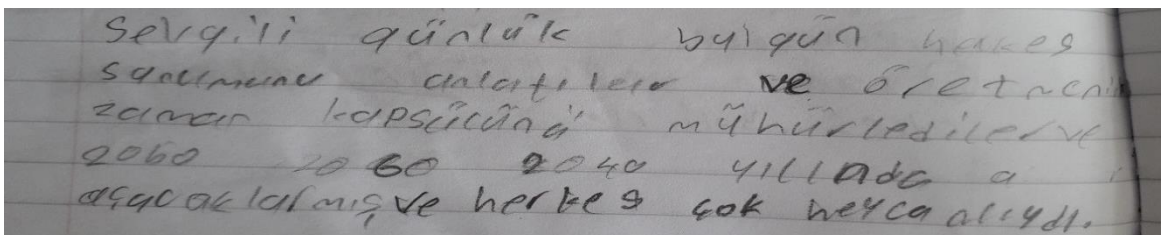 Selrgili günlük bu gün hakes
anlatılar ve öretmenin
zaman kapsülünü mühürlediler ve
2060 2060 2040 yıllada a
açacaklarmış ve herkes çok heycanlıydı.